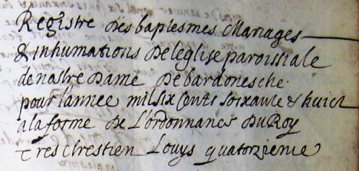 Registre des baptesmes Mariages
& inhumations de leglise paroissiale
de nostre Dame De bardonesche
pour lannee mil six cents soixante & huict
a la forme De Lordonnance Du Roy
tres chrestien Louys quatorzieme